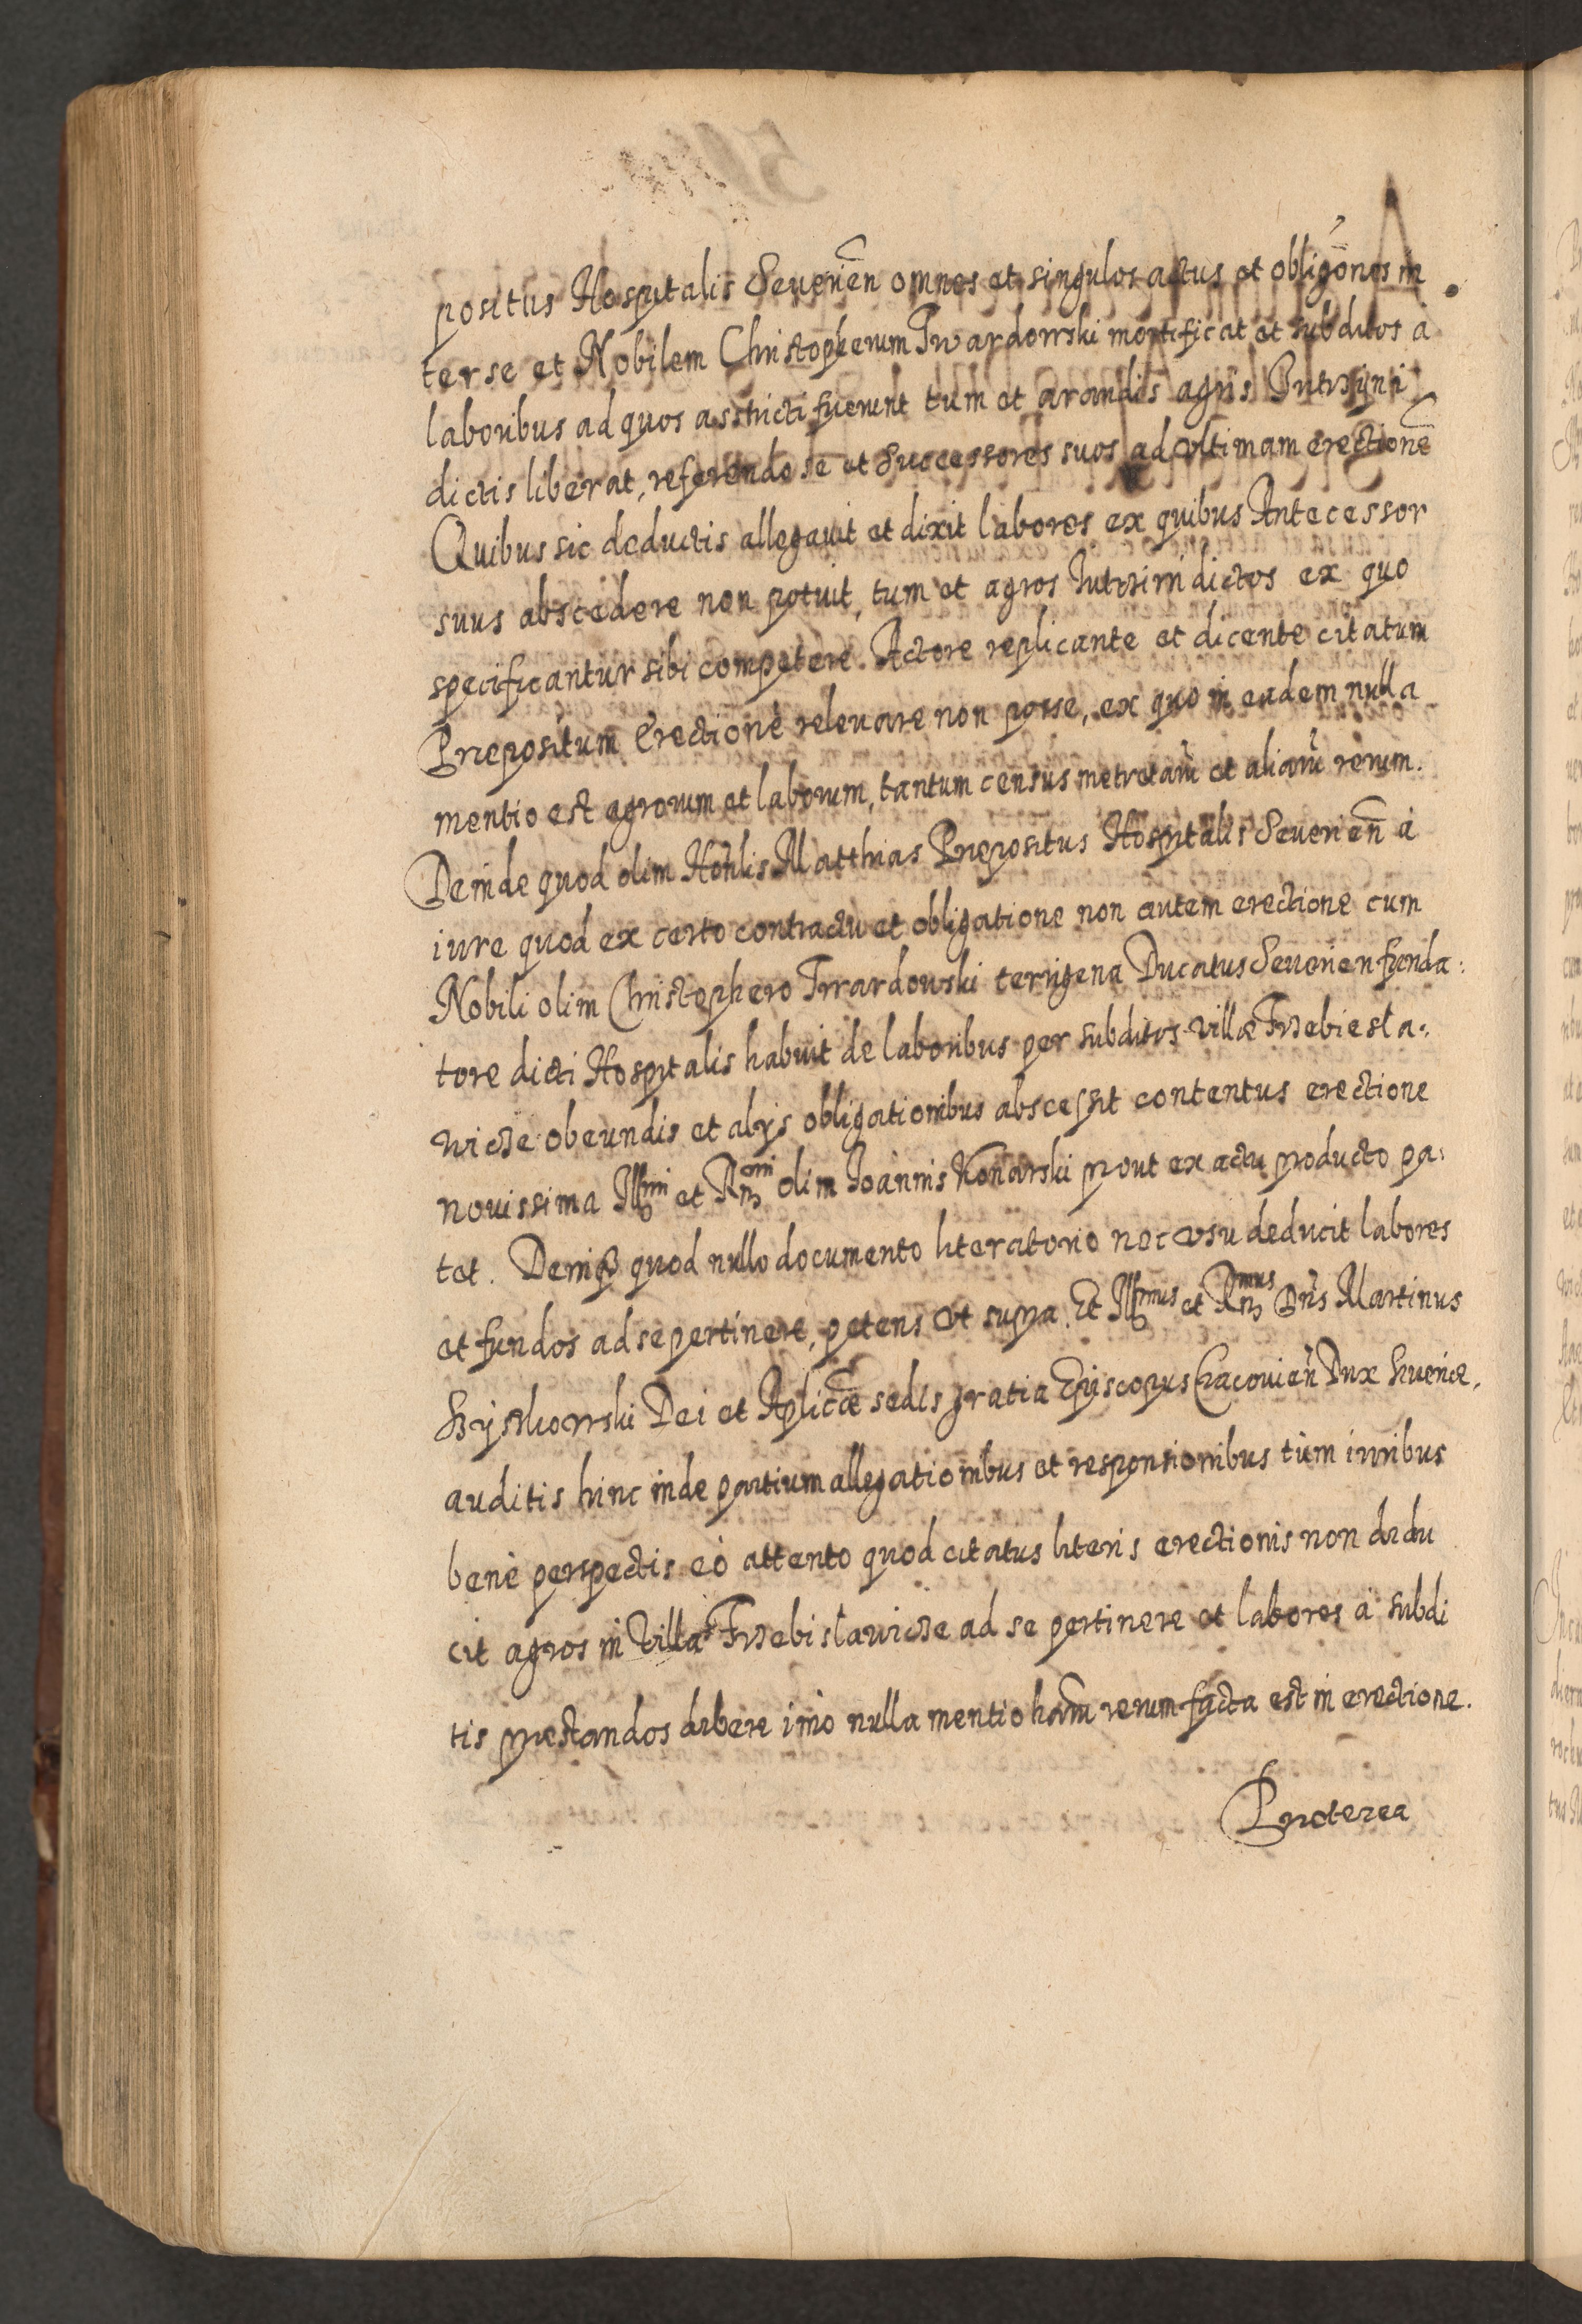 positus Hospitalis Seuerień omnes et singulos actus et obligōnes in
ter se et Nobilem Christopherum Twardowski mortificat et subditos a
laboribus ad quos asstricti fuerunt tum et arandis agris Jutrzyni
dictis liberat, referendo se et Successores suos ad vltimam erectionē
Quibus sic deductis allegauit et dixit labores ex quibus Antecessor
suus abscedere non potuit, tum et agros Jutrzini dictos ex quo
specificantur sibi competere. Actore replicante et dicente citatum
Præpositum Erectionè releuare non posse, ex quo in eadem nulla
mentio est agrorum et laborum, tantum census metretarū et aliarū rerum.
Deinde quod olim Hońlis Matthias Præpositus Hospitalis Seuerień à
iure quod ex certo contractu et obligatione non autem erectione cum
Nobili olim Christophero Twardowski terrigena Ducatus Seuerien funda:
tore dicti Hospitalis habuit de laboribus per subditos villæ Trzebiesla:
wicze obeundis et alijs obligationibus abscessit contentus erectione
nouissima Illmi et Rmi olim Joannis Konarski prout ex actu producto pa:
tet. Deniq quod nullo documento literatorio nec vsu deducit labores
et fundos ad se pertinere, petens vt supra. Et Illmus et Rmus Dn̄s Martinus
Szyszkowski Dei et Aplicæ sedis gratia Episcopus Cracouień Dux Seueriæ,
auditis hinc inde partium allegationibus et responsionibus tùm iuribus
benè perspectis eò attento quod citatus literis erectionis non dedu
cit agros in Villa Trzebislawicze ad se pertinere et labores à subdi
tis præstandos debere imò nulla mentio harū rerum facta est in erectione.
Præterea